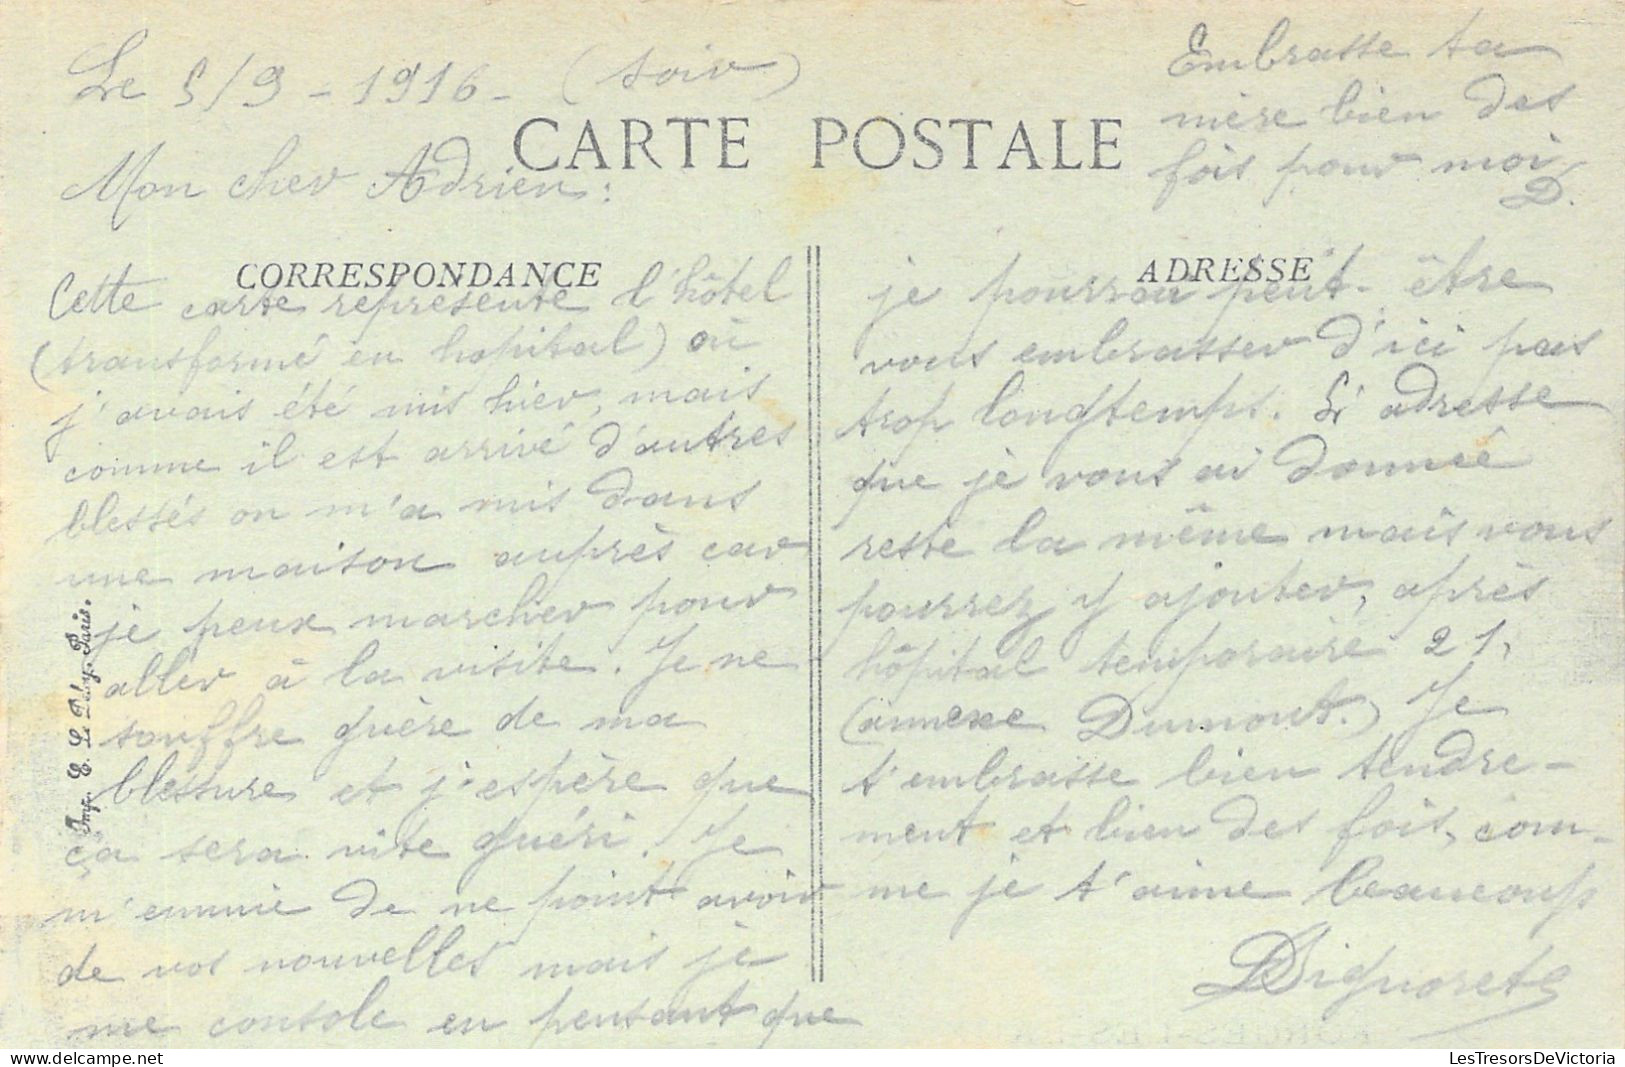 Le 5/9 - 1916 - (soir)
Embrasse ta
mère bien des
fois pour moi
D.
CARTE POSTALE
Mon cher Adrien :
CORRESPONDANCE
Cette carte représente l'hôtel
(transformé en hopital) où
j'avais été mis hier, mais
comme il est arrivé d'autres
blessés on m'a mis dans
une maison auprès car
je peux marcher pour
aller à la visite. Je ne
souffre guère de ma
blessure et j'espère que
ça sera vite guéri. Je
m'ennuie de ne point avoir
de vos nouvelles mais je
me console en pensant que
Imp. E. Le Deley, Paris.
ADRESSE
je pourrai peut-être
vous embrasser d'ici pas
trop longtemps. L'adresse
que je vous ai donnée
reste la même mais vous
pourrez y ajouter, après
hôpital temporaire 21,
(annexe Dumont.) Je
t'embrasse bien tendre-
ment et bien des fois, com-
me je t'aime beaucoup
LesTresorsDeVictoria